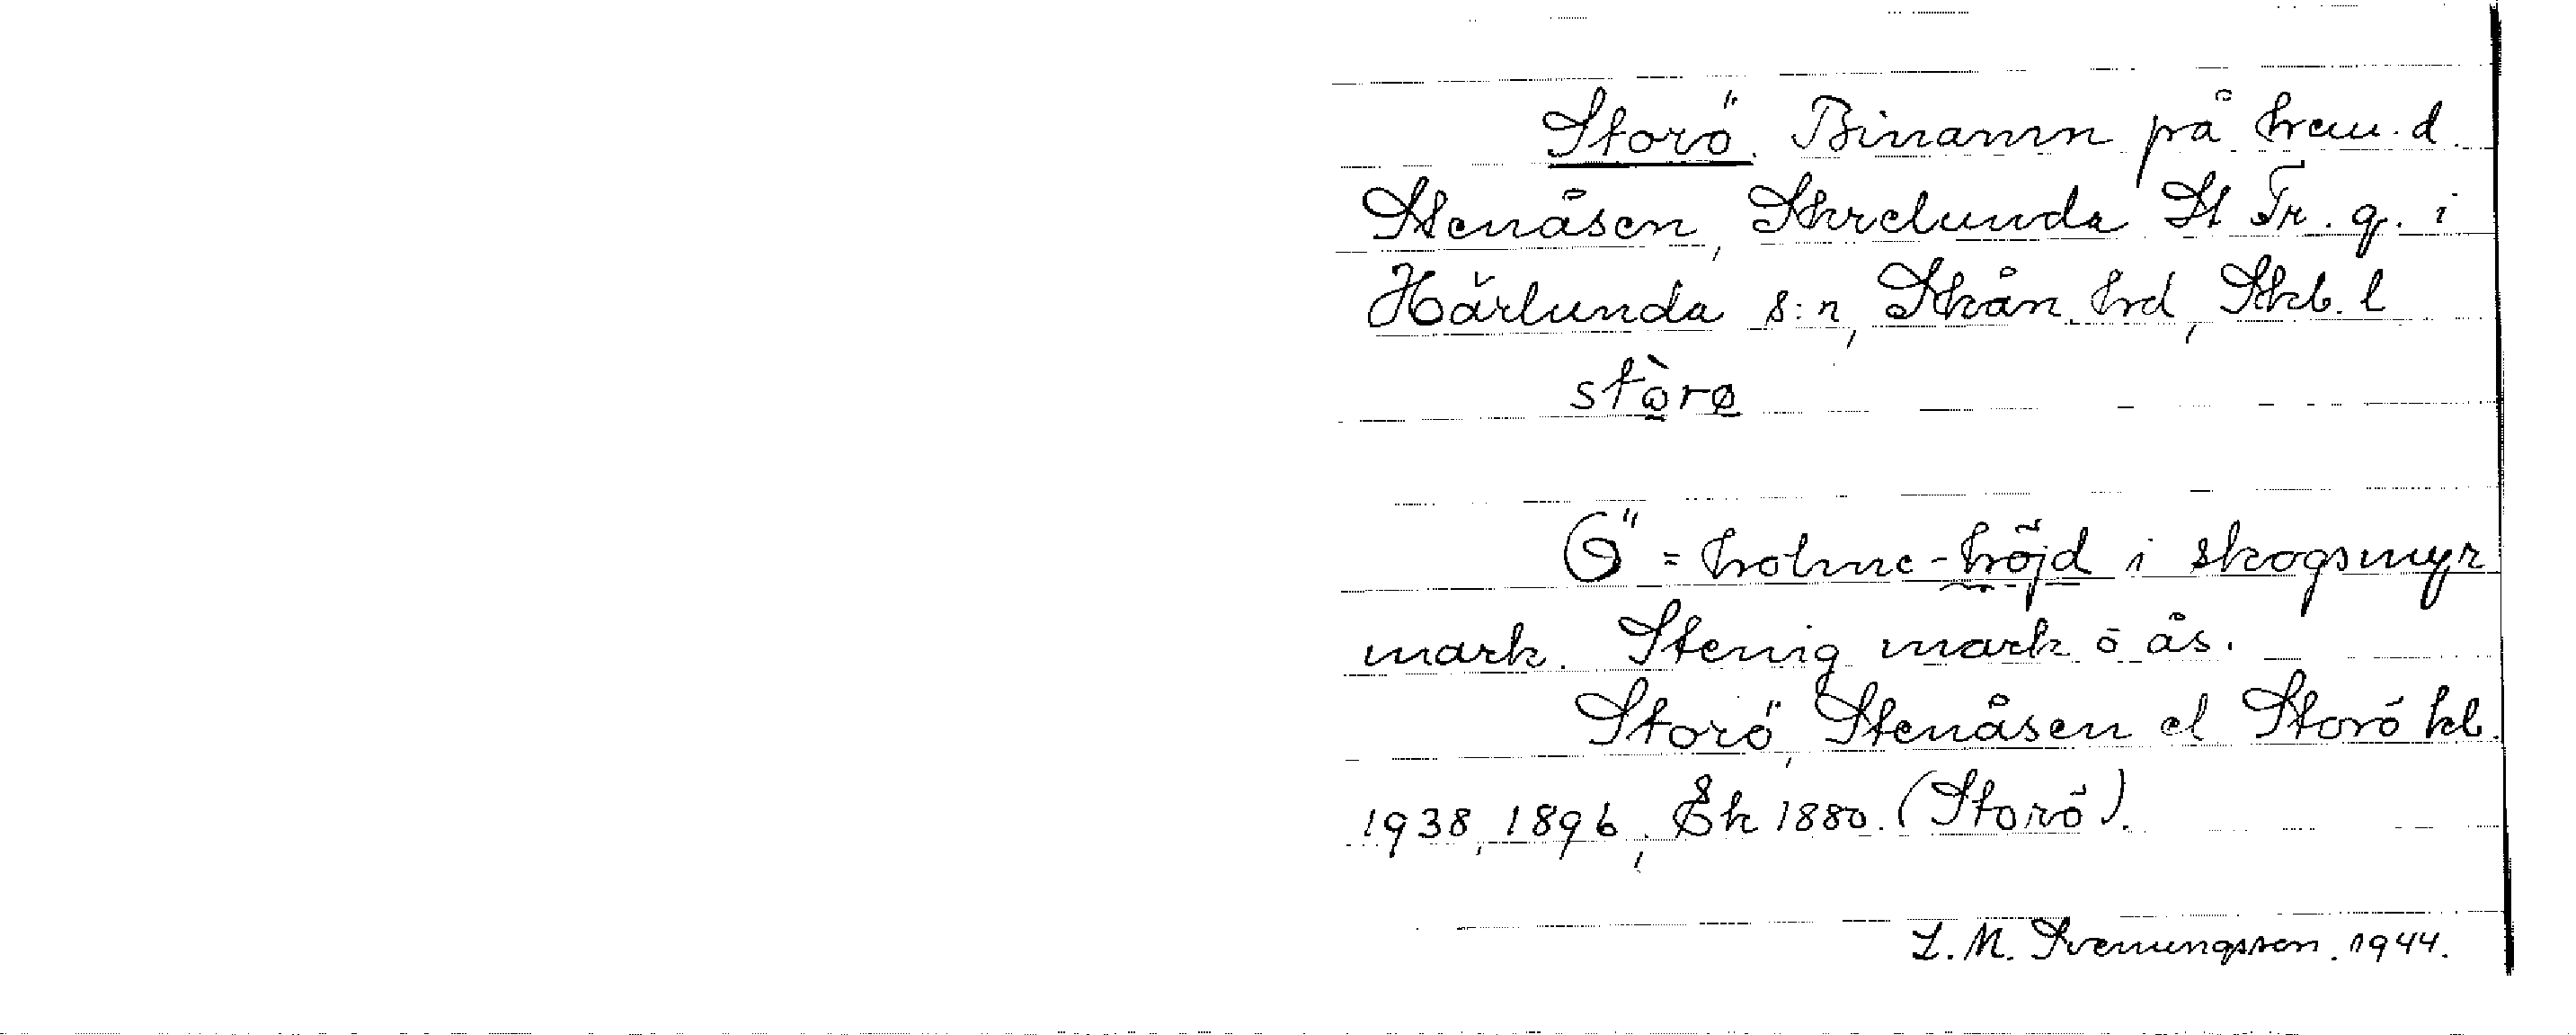 Storö. Binamn på hem. d.
Stenåsen, Skrelunda St Fr. g. i
Härlunda s:n, Skån. hrd, Skb. l
stòrø
Ö = holme-höjd i skogsmyr
mark. Stenig mark o ås.
Storö, Stenåsen el Storö kb.
1938, 1896, Ek 1880. (Storö).
L. M. Svenungsson. 1944.